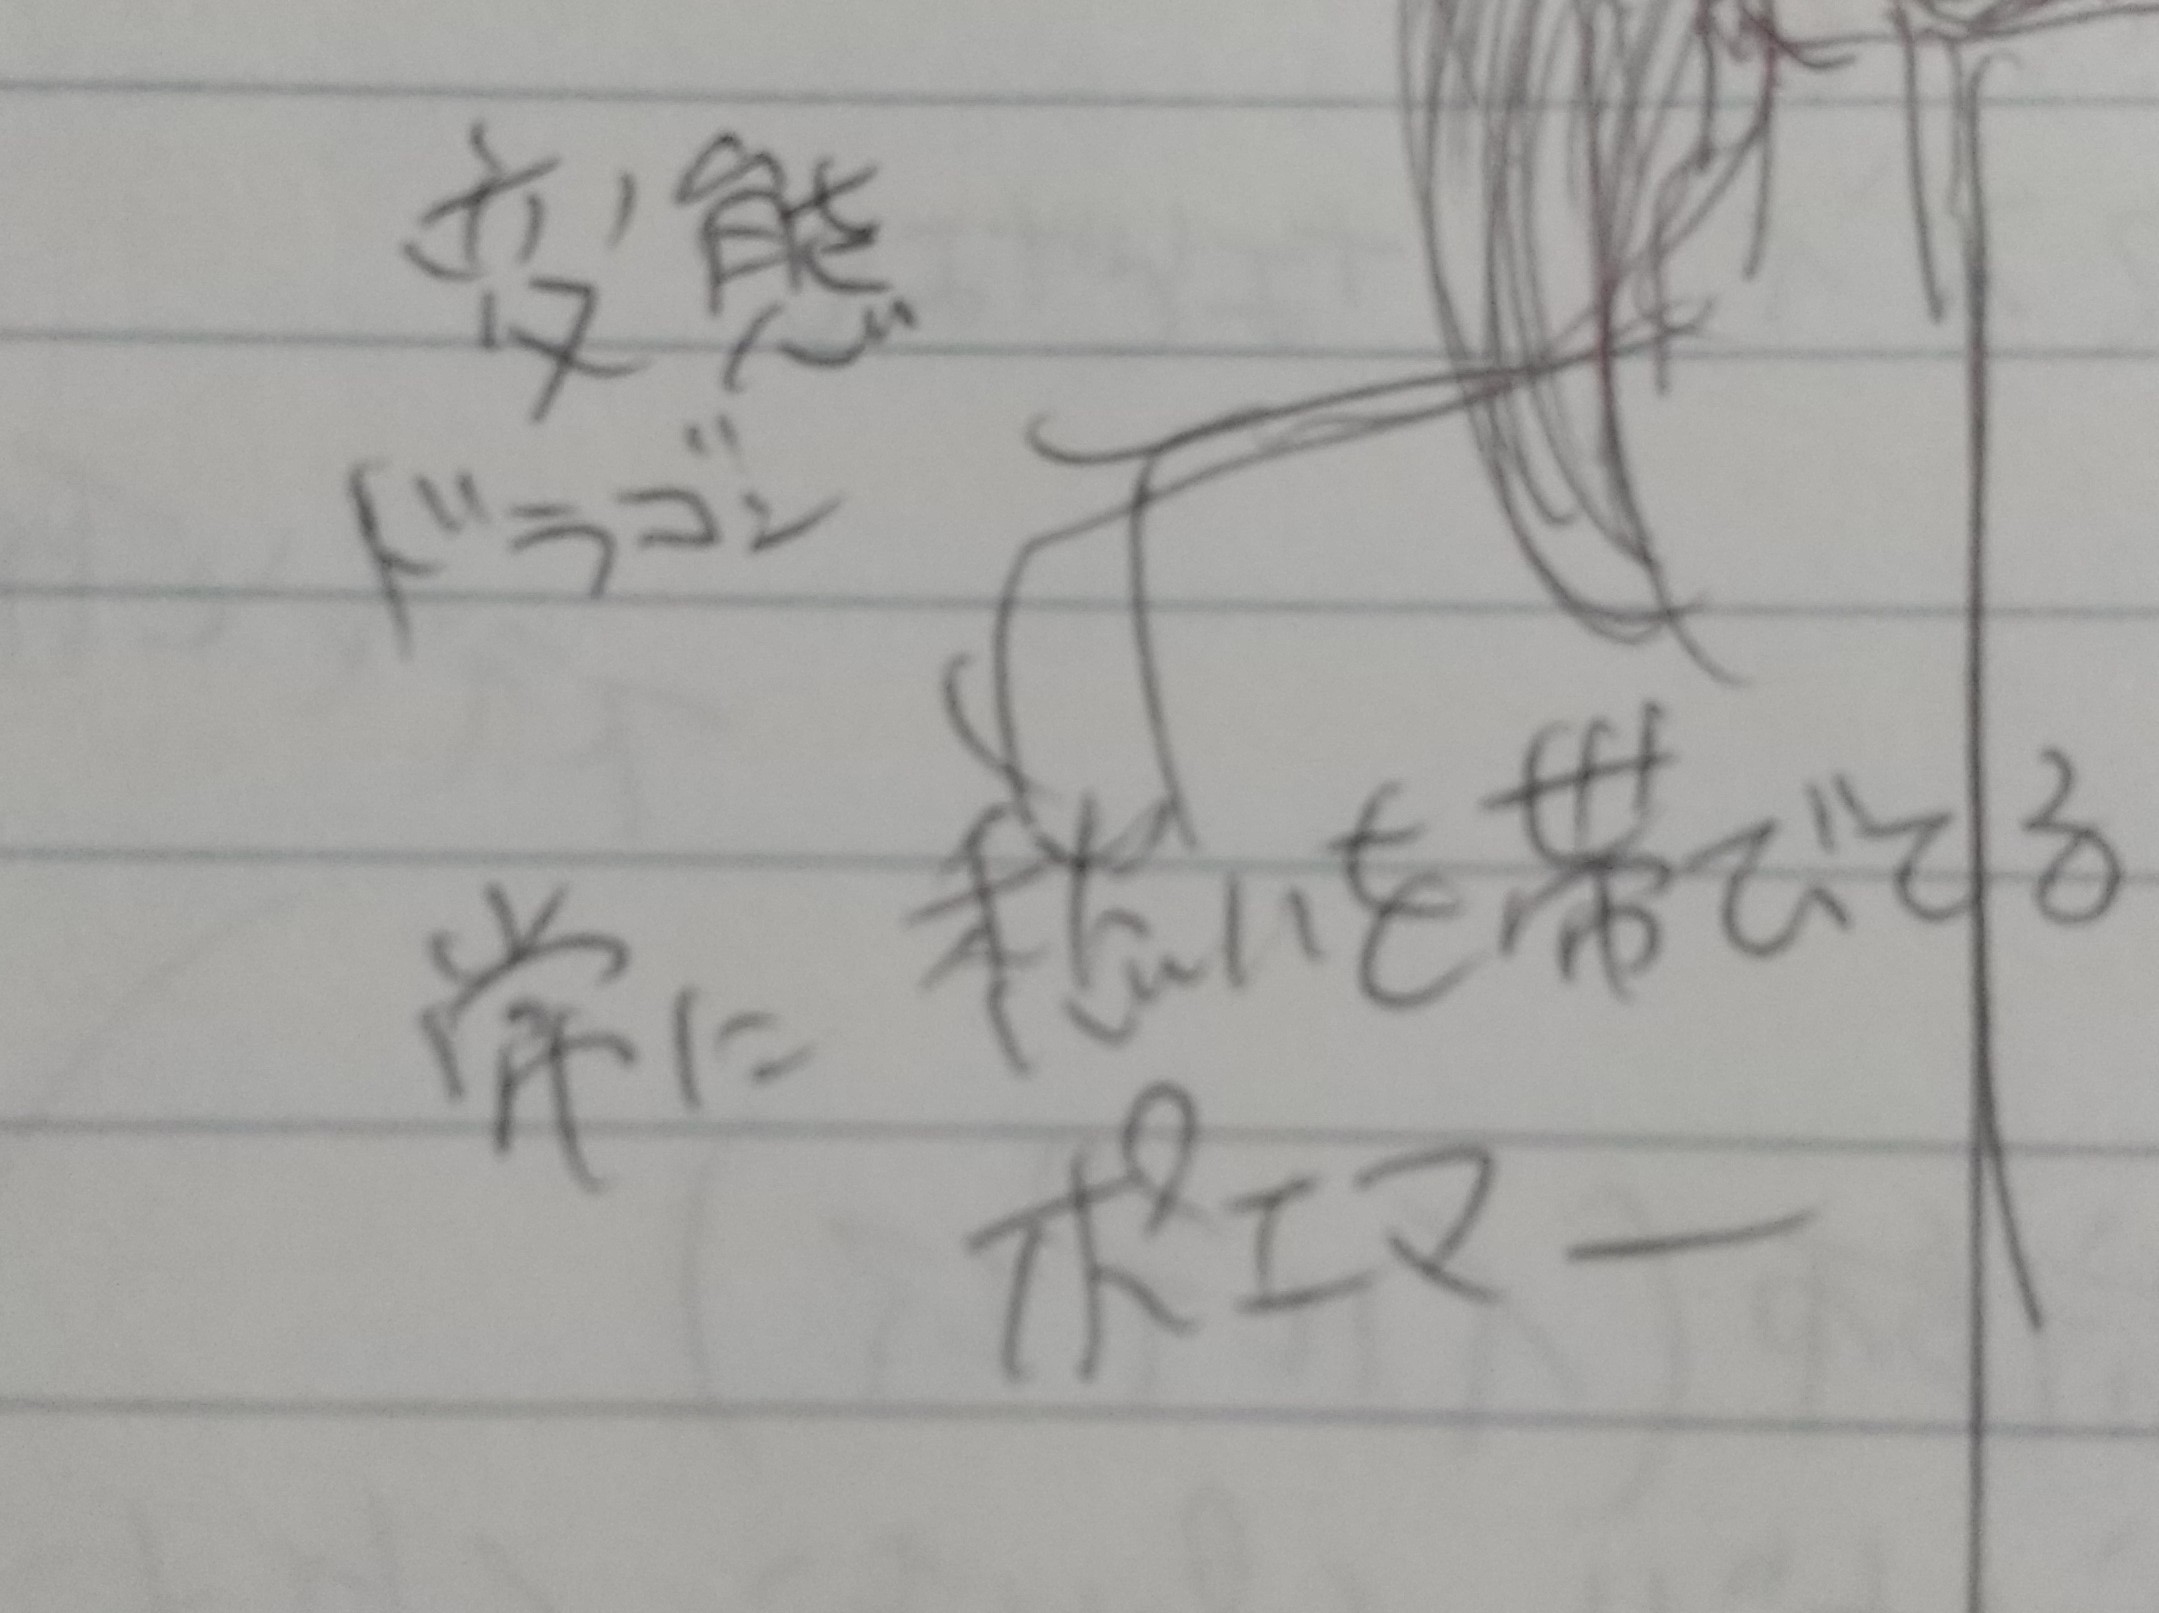 変態
ドラゴン
常に愁いを帯びてる
ポエマー